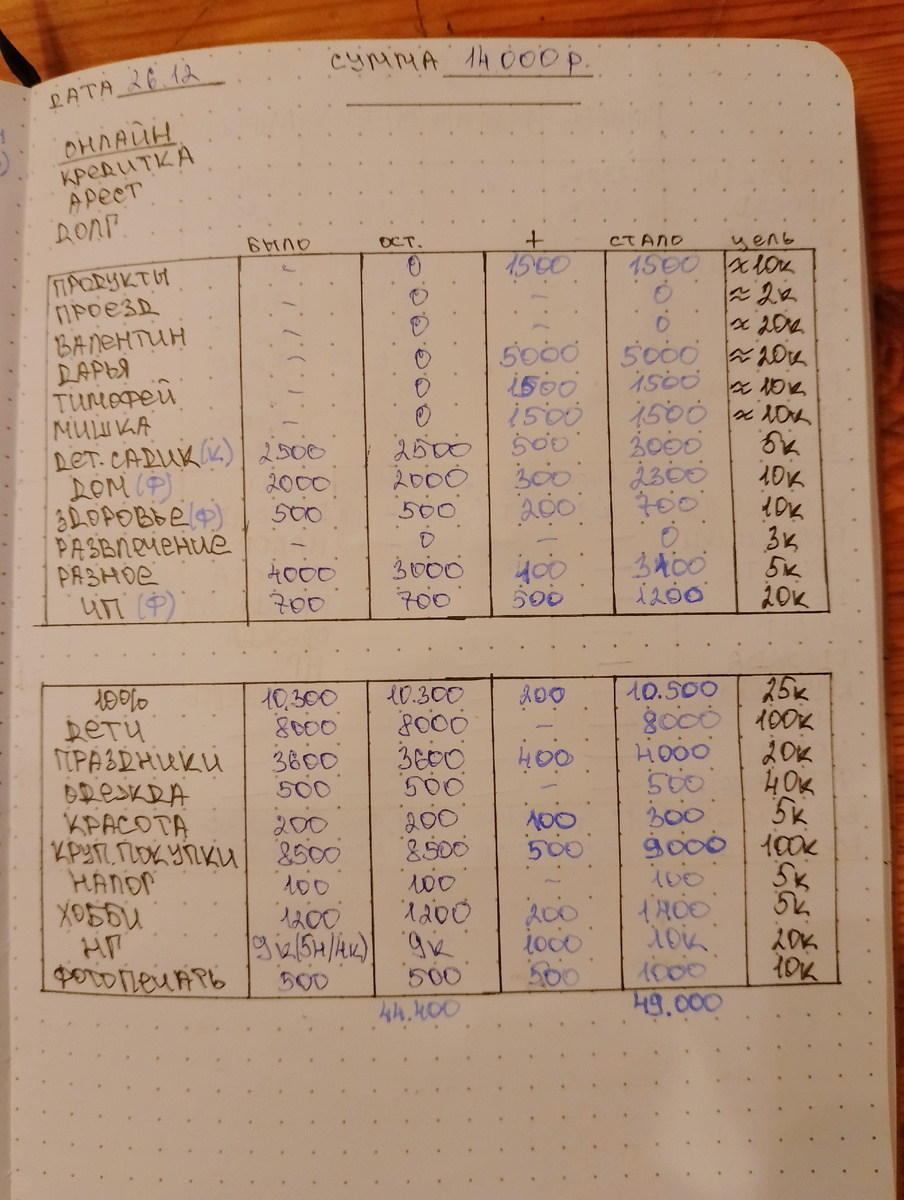 ДАТА 26.12 СУММА 14 000 р.
ОНЛАЙН
КРЕДИТКА
АРЕСТ
ДОЛГ
БЫЛО ОСТ. + СТАЛО ЦЕЛЬ
ПРОДУКТЫ - 0 1500 1500 ≈10к
ПРОЕЗД - 0 - 0 ≈2к
ВАЛЕНТИН - 0 - 0 ≈20к
ДАРЬЯ - 0 5000 5000 ≈20к
ТИМОФЕЙ - 0 1500 1500 ≈10к
МИШКА - 0 1500 1500 ≈10к
ДЕТ. САДИК (К) 2500 2500 500 3000 5к
ДОМ (Ф) 2000 2000 300 2300 10к
ЗДОРОВЬЕ (Ф) 500 500 200 700 10к
РАЗВЛЕЧЕНИЕ - 0 - 0 3к
РАЗНОЕ 4000 3000 400 3400 5к
ЧП (Ф) 700 700 500 1200 20к
100% 10.300 10.300 200 10.500 25к
ДЕТИ 8000 8000 - 8000 100к
ПРАЗДНИКИ 3600 3600 400 4000 20к
ОДЕЖДА 500 500 - 500 40к
КРАСОТА 200 200 100 300 5к
КРУП. ПОКУПКИ 8500 8500 500 9000 100к
НАЛОГ 100 100 - 100 5к
ХОББИ 1200 1200 200 1400 5к
НГ 9к(5н/4к) 9к 1000 10к 20к
ФОТОПЕЧАТЬ 500 500 500 1000 10к
44.400 49.000